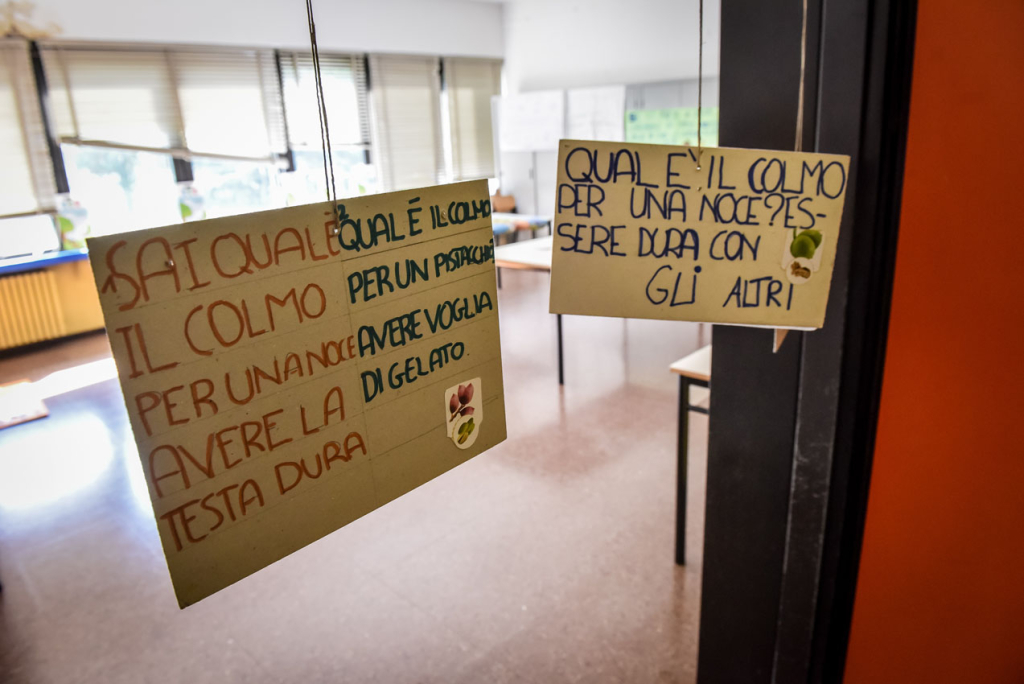 1 SAI QUALE
IL COLMO
PER UNA NOCE
AVERE LA
TESTA DURA
2 QUAL É IL COLMO
PER UN PISTACCHIO
AVERE VOGLIA
DI GELATO
QUAL É IL COLMO
PER UNA NOCE? ES-
SERE DURA CON
GLI ALTRI